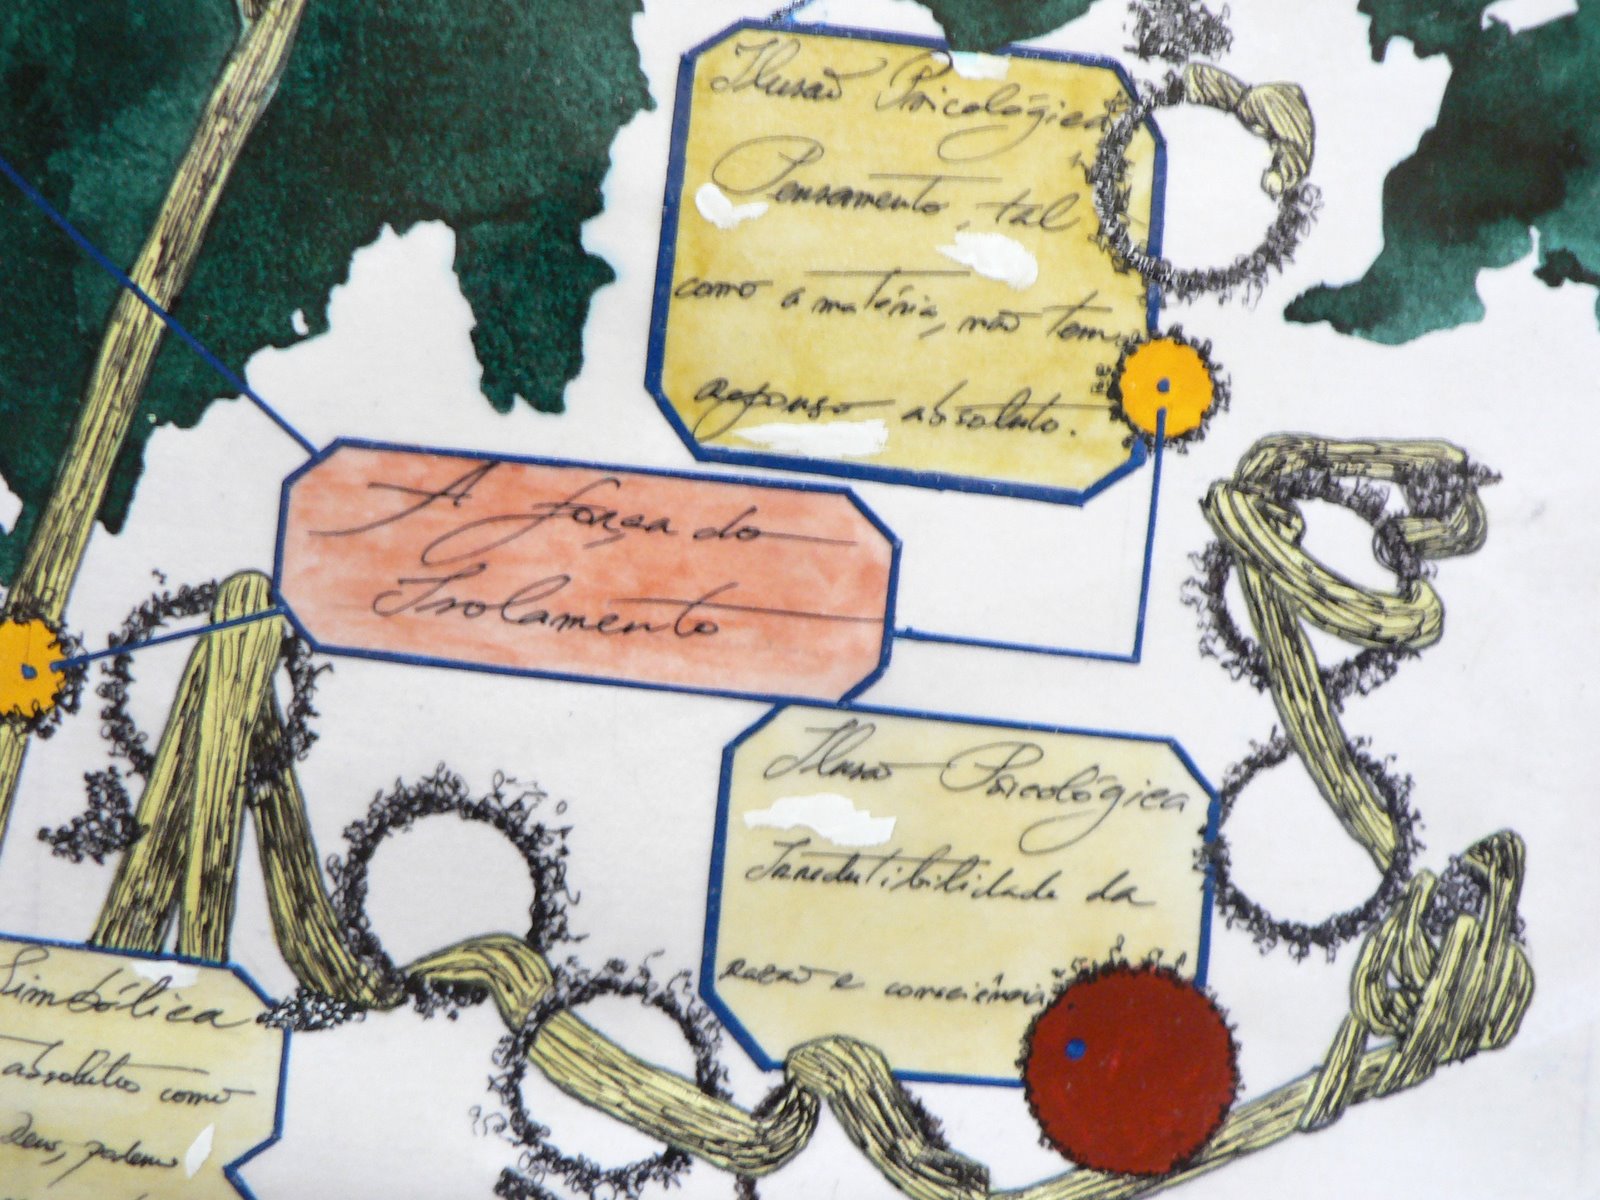 Ilusão Psicológica
Pensamento, tal
como a matéria, não tem
repouso absoluto.
A força do
Isolamento
Ilusão Psicológica
Irredutibilidade da
razão e consciência
Simbólica
absoluto como
Deus, podemos